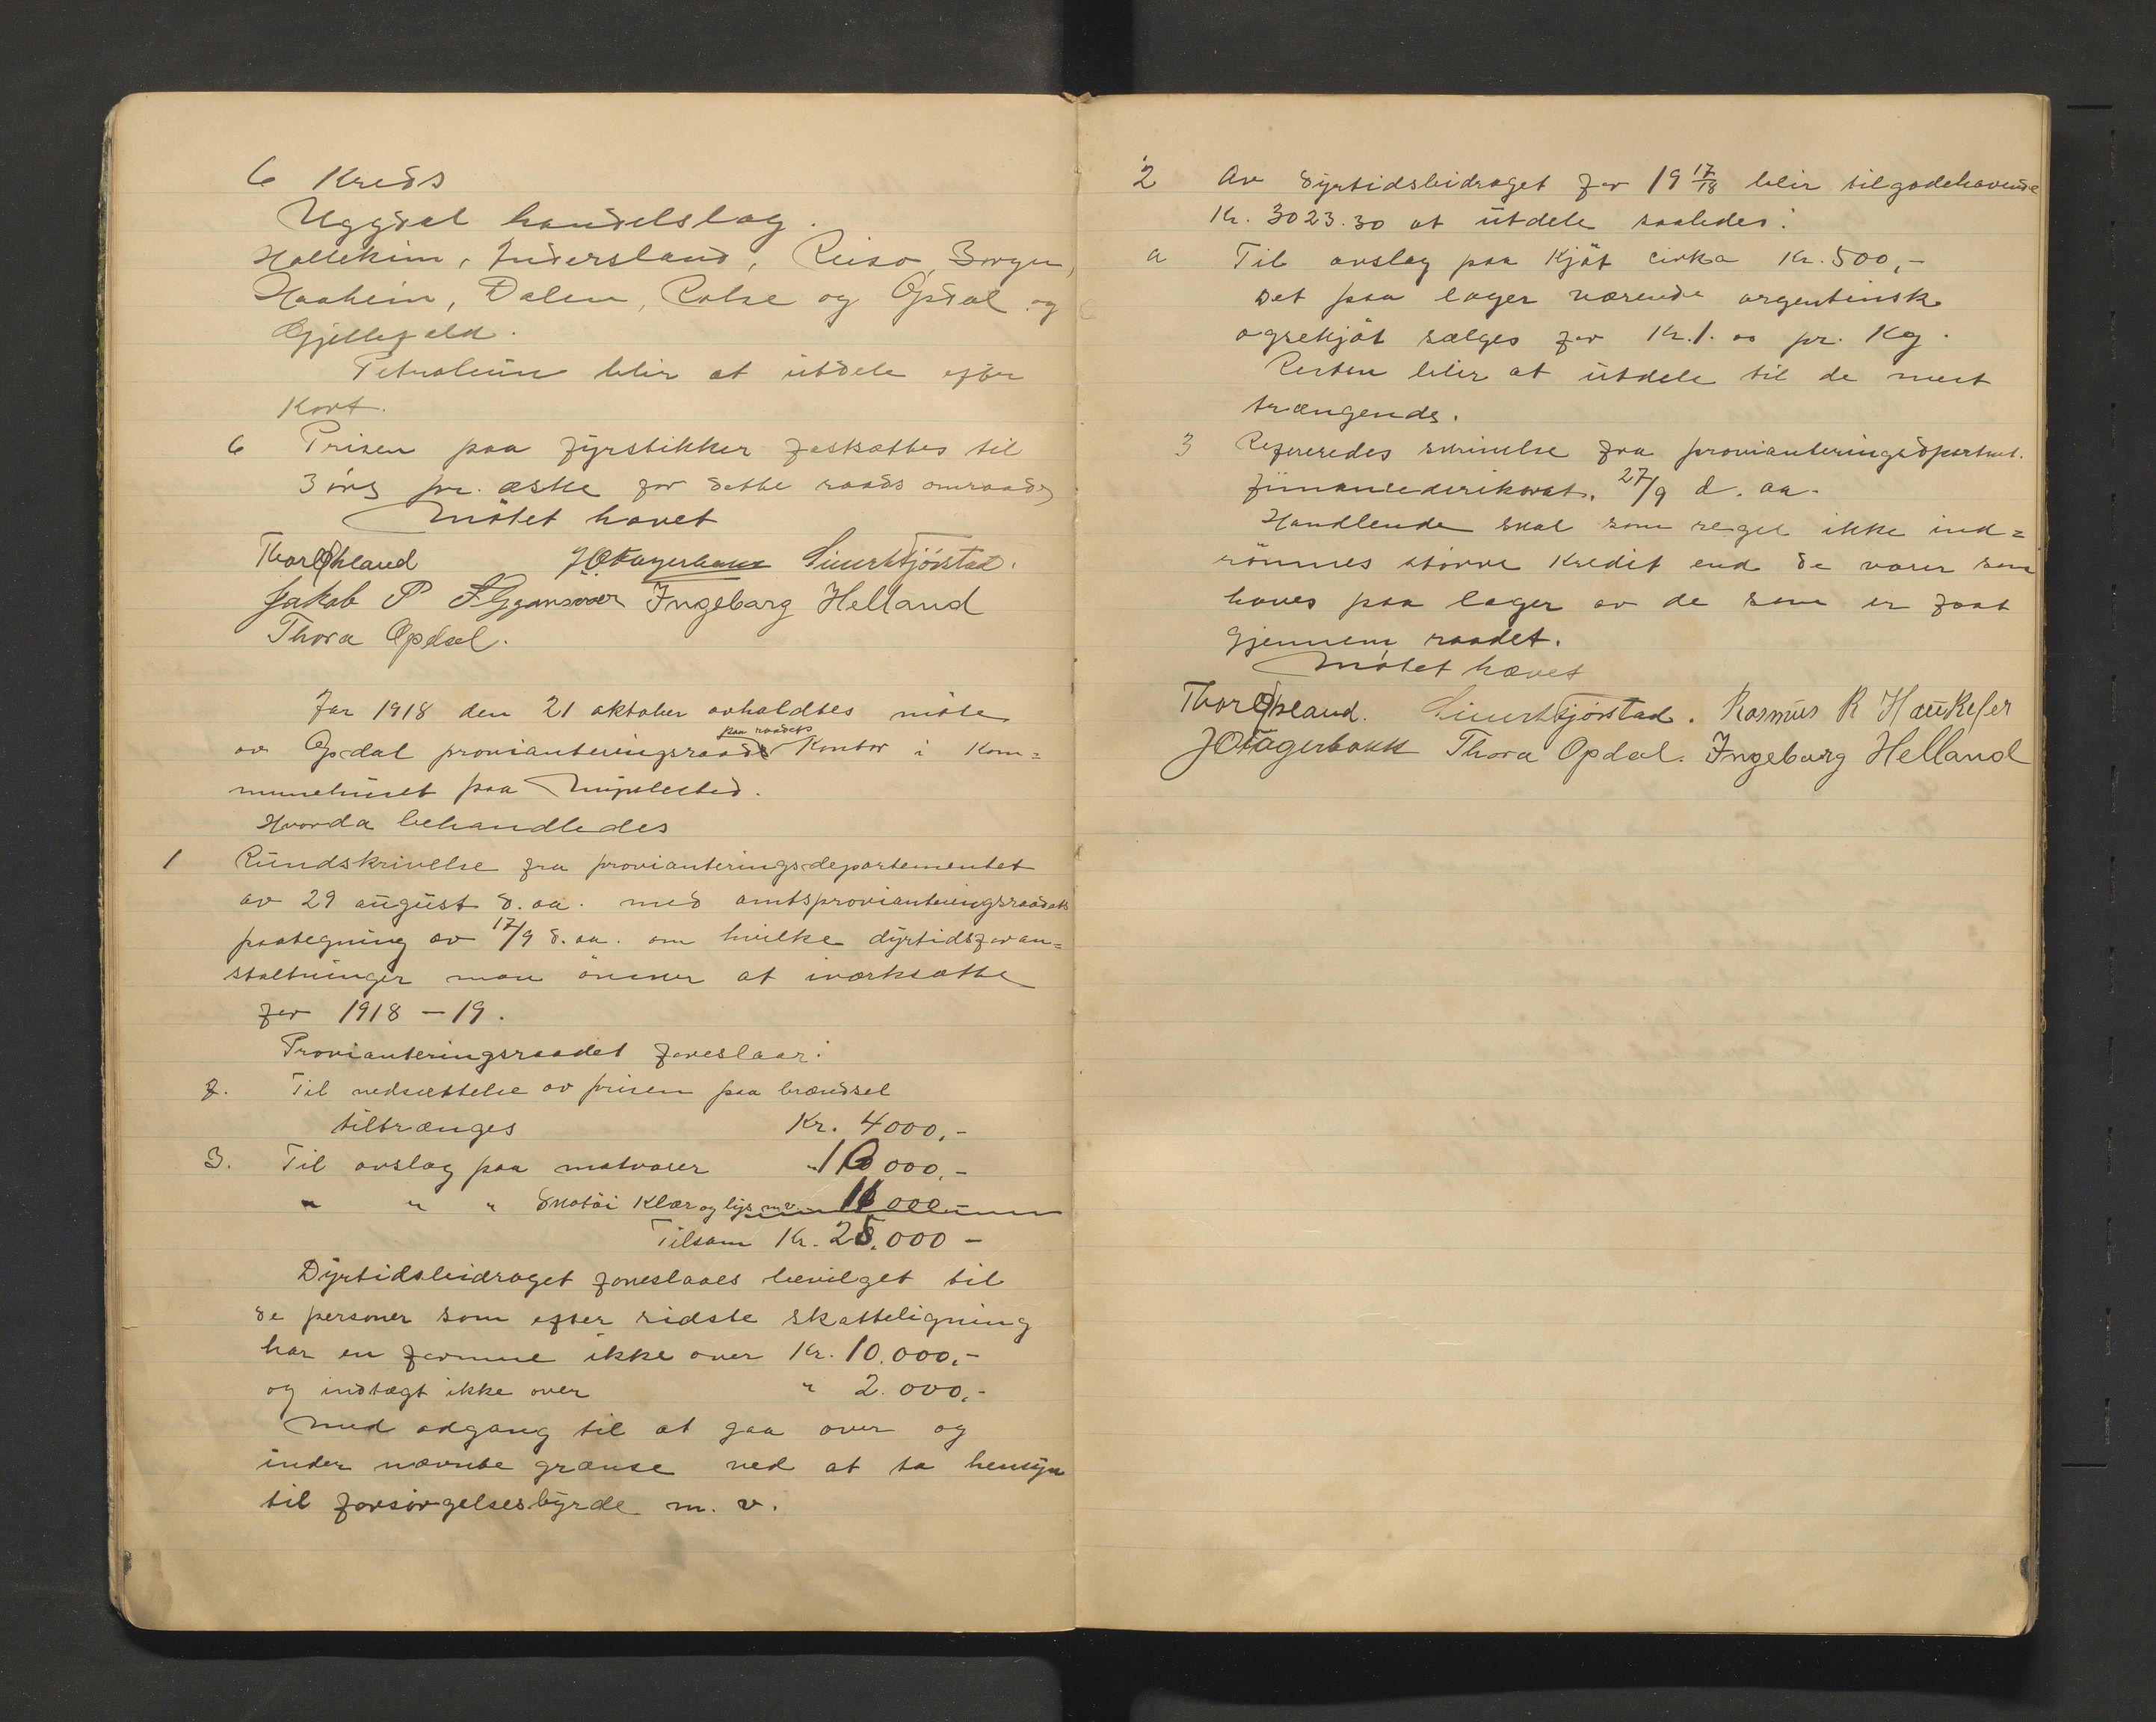 6 Kreds
Uggdal handelslag.
Hallekim, Andersland, Reiso, Borgen,
Haaheim, Dalen, Rolse og Opdal og
Gjellefald.
Petroleum blir at utdele efter
Kort.
6 Prisen paa fyrstikker fastsættes til
3 öre pr. æske for dette raads omraade
Mötet hævet
Thor Opheland J O Fagerbakk Sivert Tjörstad.
Jakob P Ingeborg Helland
Thora Opdal.
Aar 1918 den 21 oktober avholdtes möte
paa raadets
av Opdal provianteringsraads Kontor i Kom=
munehuset paa Uniplested.
Hvorda behandledes
1 Rundskrivelse fra provianteringsdepartementet
av 29 august d. aa. med amtsprovianteringsraadets
paategning av 17/9 d. aa. om hvilke dyrtidsforan=
staltninger man önsker at iværksætte
for 1918 – 19.
Provianteringsraadet foreslaar:
2. Til nedsættelse av prisen paa brændsel
tiltrænges Kr. 4000,-
3. Til avslag paa matvarer " 10 000,-
" " " Skotöi Klær og lys m.v. 11 000 -
Tilsam Kr. 25.000 -
Dyrtidsbidraget foreslaaes bevilget til
de personer som efter sidste skatteligning
har en formue ikke over Kr. 10.000,-
og indtægt ikke over " 2.000,-
Med adgang til at gaa over og
under nævnte grænse ved at ta hensyn
til forsörgelsesbyrde m. v.
2 Av dyrtidsbidraget for 19 17/18 blir tilgodehavende
Kr. 3023.30 at utdele saaledes:
a Til avslag paa Kjöt cirka Kr. 500,-
Det paa lager værende argentinsk
oksekjöt sælges for Kr. 1.00 pr. Kg.
Resten blir at utdele til de mest
trængende.
3 Refereredes skrivelse fra provianteringsdpartmet.
finansdirektorat. 27/9 d. aa.
Handlende skal som regel ikke ind=
römmes större Kredit end de varer som
haves paa lager av de som er faat
gjennem raadet.
Mötet hævet
Thor Opheland. Sivert Tjörstad. Rasmus R Haukefer
J O Fagerbakk Thora Opdal. Ingeborg Helland